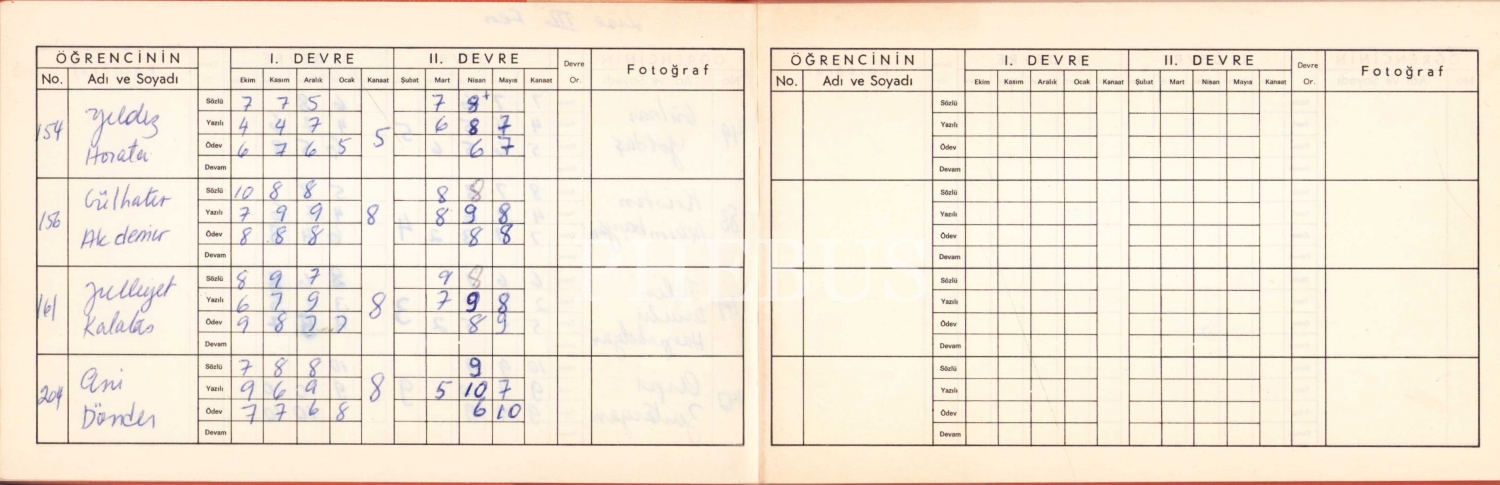 ÖĞRENCİNİN I. DEVRE II. DEVRE Devre Or. Fotoğraf
No. Adı ve Soyadı Ekim Kasım Aralık Ocak Kanaat Şubat Mart Nisan Mayıs Kanaat
154 Yıldız Horata
Sözlü 7 7 5 7 8+
Yazılı 4 4 7 5 6 8 7
Ödev 6 7 6 5 6 7
Devam
156 Gülhater Akdemir
Sözlü 10 8 8 8 8
Yazılı 7 9 9 8 8 9 8
Ödev 8 8 8 8 8
Devam
161 Kalataş
Sözlü 8 9 7 9 8
Yazılı 6 7 9 8 7 9 8
Ödev 9 8 7 7 8 9
Devam
204 Ani Dönder
Sözlü 7 8 8 9
Yazılı 9 6 9 8 5 10 7
Ödev 7 7 6 8 6 10
Devam
PHEBUS
ÖĞRENCİNİN I. DEVRE II. DEVRE Devre Or. Fotoğraf
No. Adı ve Soyadı Ekim Kasım Aralık Ocak Kanaat Şubat Mart Nisan Mayıs Kanaat
Sözlü
Yazılı
Ödev
Devam
Sözlü
Yazılı
Ödev
Devam
Sözlü
Yazılı
Ödev
Devam
Sözlü
Yazılı
Ödev
Devam